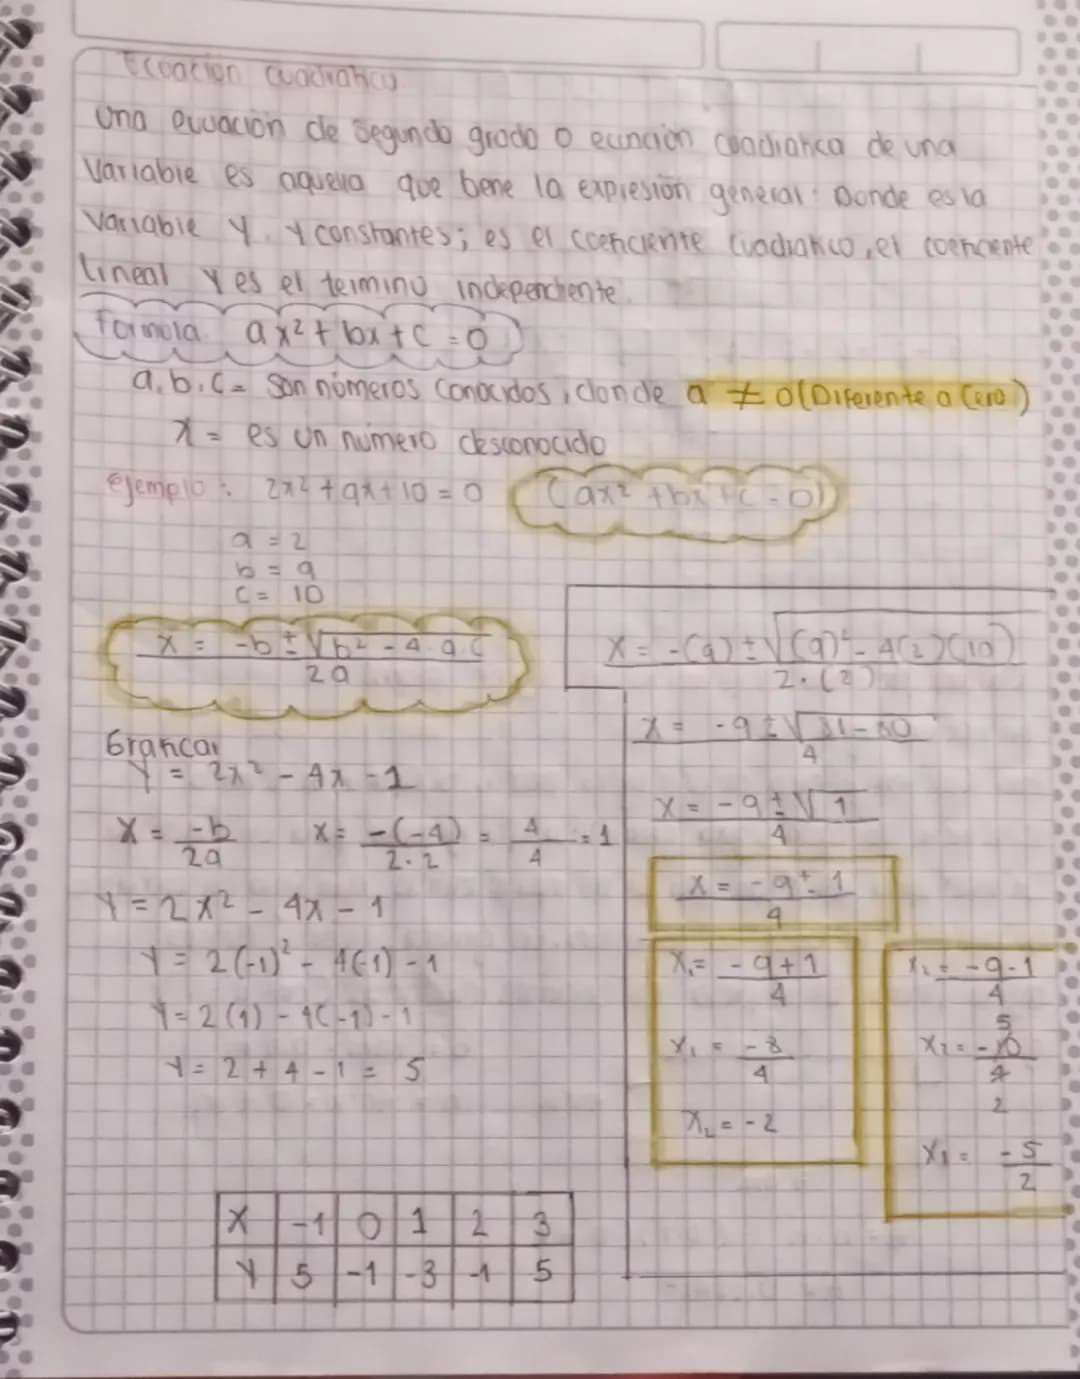 Ecuación cuadratica
Una ecuación de segundo grado o ecuación cuadratica de una
variable es aquella que tiene la expresión general: Donde es la
variable y, y constantes; es el coeficiente cuadratico, el coeficiente
lineal y es el termino independiente.
Formola. ax² + bx + c = 0
a, b, c = son números conocidos, donde a ≠ 0 (Diferente a Cero)
x = es un número desconocido
ejemplo: 2x² + 9x + 10 = 0 (ax² + bx + c = 0)
a = 2
b = 9
c = 10
x = -b ± √b² - 4 . a . c
2a
x = -(9) ± √(9)² - 4(2)(10)
2 . (2)
x = -9 ± √81 - 80
4
x = -9 ± √1
4
x = -9 ± 1
4
x₁ = -9 + 1
4
x₁ = -8
4
x₂ = -2
x₂ = -9 - 1
4
5
x₂ = -10
4
2
x₁ = -5
2
Graficar
y = 2x² - 4x - 1
x = -b x = -(-4) = 4 = 1
2a 2 . 2 4
y = 2x² - 4x - 1
y = 2(-1)² - 4(-1) - 1
y = 2(1) - 4(-1) - 1
y = 2 + 4 - 1 = 5
x -1 0 1 2 3
y 5 -1 -3 -1 5